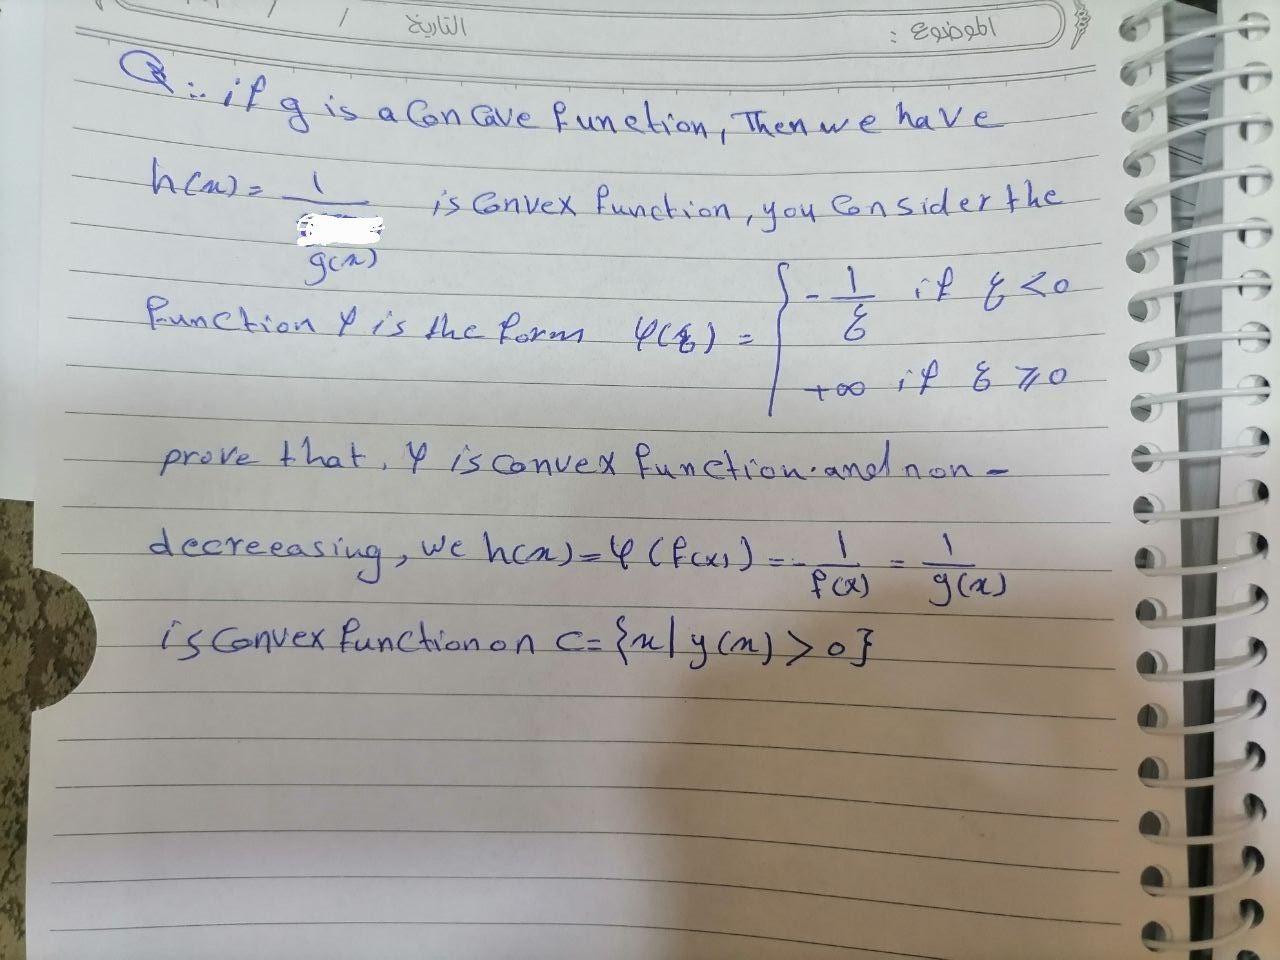 الموضوع :
التاريخ / /
Q :- if g is a Concave function, Then we have
h(x) = 1 / g(x) is Convex function, you Consider the
function φ is the form φ(ξ) = { - 1/ξ if ξ < 0
+∞ if ξ ⩾ 0
prove that, φ is convex function. and non-
decreeasing, we h(x) = φ(f(x)) = - 1/f(x) = 1/g(x)
is Convex function on C = {x | y(x) > 0}